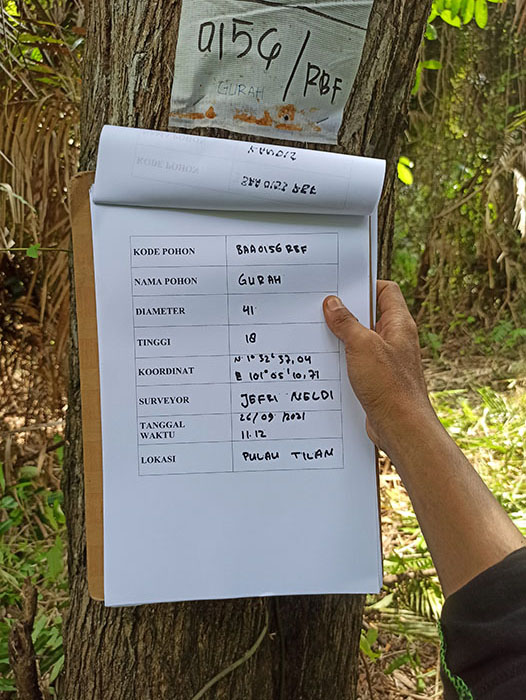 0156/RBF
GURAH
KODE POHON BAA0156RBF
NAMA POHON GURAH
DIAMETER 41
TINGGI 18
KOORDINAT N 1° 32' 37,04
E 101° 05' 10,71
SURVEYOR JEFRI NELDI
TANGGAL 26/09/2021
WAKTU 11.12
LOKASI PULAU TILAN